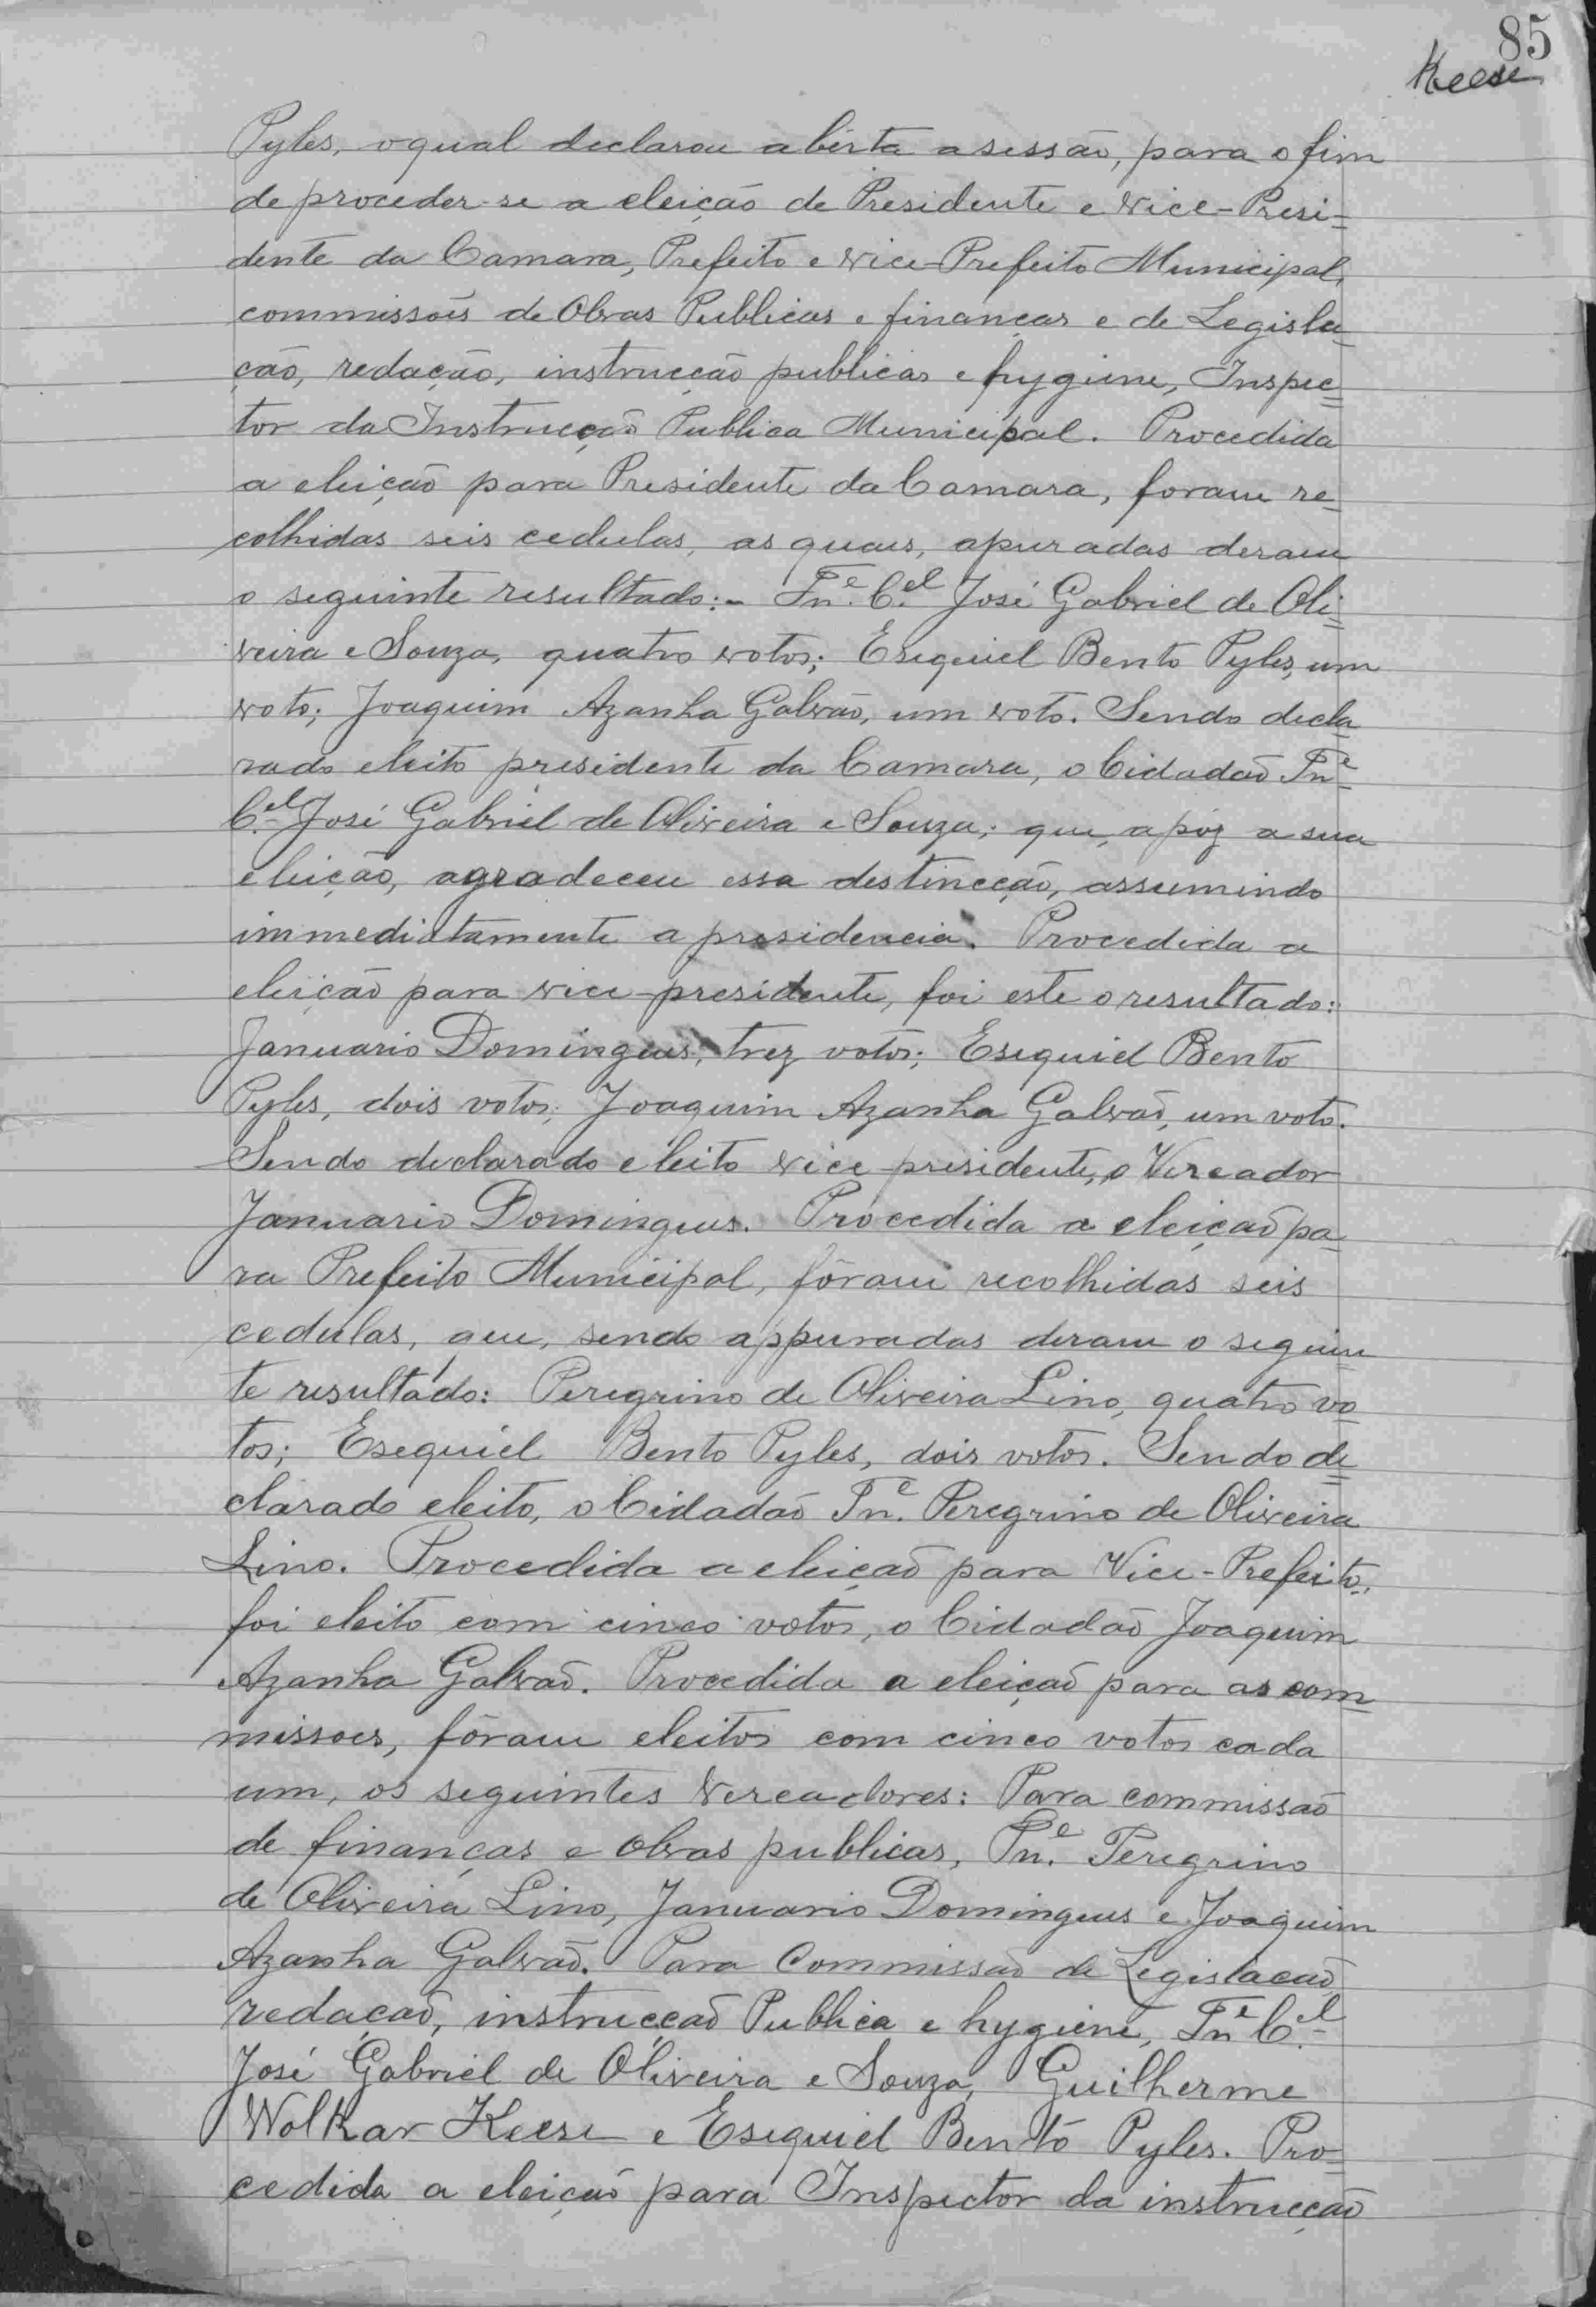 85
Keese
Pyles, o qual declarou abérta a sessão, para o fim
de proceder-se a eleição de Presidente e Vice-Presi-
dente da Camara, Prefeito e Vice-Prefeito Municipal,
commissoẽs de Obras Publicas e finanças e de Legisla-
ção, redação, instrucção publicas e hygiene, Inspec=
tor da Instrucção Publica Municipal. Procedida
a eleição para Presidente da Camara, foram re-
colhidas seis cedulas, as quaes, apuradas deram
o seguinte resultado:- Tn.e C.el José Gabriel de Oli=
veira e Souza, quatro votos; Esequiel Bento Pyles, um
voto; Joaquim Azanha Galvão, um voto. Sendo decla-
rado eleito presidente da Camara, o Cidadão Tn.e
C.el José Gabriel de Oliveira e Souza; que, apóz a sua
eleição, agradeceu essa destincção, assumindo
immediatamente a presidencia. Procedida a
eleição para vice-presidente, foi este o resultado:
Januario Domingues, trez votos; Esequiel Bento
Pyles, dois votos; Joaquim Azanha Galvão, um voto.
Sendo declarado eleito vice presidente, o Vereador
Januario Domingues. Procedida a eleição pa-
ra Prefeito Municipal, fôram recolhidas seis
cedulas, que, sendo appuradas deram o seguin=
te resultado: Peregrino de Oliveira Lino, quatro vo=
tos; Esequiel Bento Pyles, dois votos. Sendo de=
clarado eleito, o Cidadão Tn.e Peregrino de Oliveira
Lino. Procedida a eleição para Vice-Prefeito,
foi eleito com cinco votos, o Cidadão Joaquim
Azanha Galvão. Procedida a eleição para as com=
missoes, fôram eleitos com cinco votos cada
um, os seguintes Vereadores: Para commissão
de finanças e obras publicas, Tn.e Peregrino
de Oliveira Lino, Januario Domingues e Joaquim
Azanha Galvão. Para Commissão de Legislacaõ
redaçaõ, instrucçaõ Publica e hygiene, Tn.e C.el
José Gabriel de Oliveira e Souza, Guilherme
Wolkar Keese e Esequiel Bento Pyles. Pro=
cedida a eleição para Inspector da instrucção